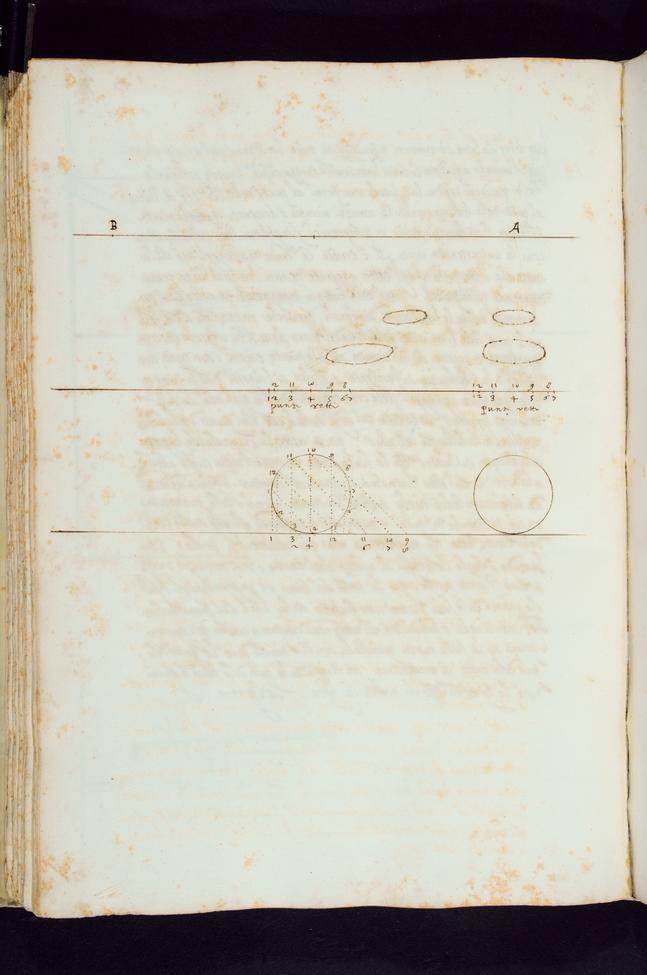 B A
12 11 10 9 8 12 11 10 9 8
12 3 4 5 6 7 12 3 4 5 6 7
punti retti punti retti
11 10 9
12 8
7
2
3 4
1 3 1 12 11 10 9
2 4 6 7 8